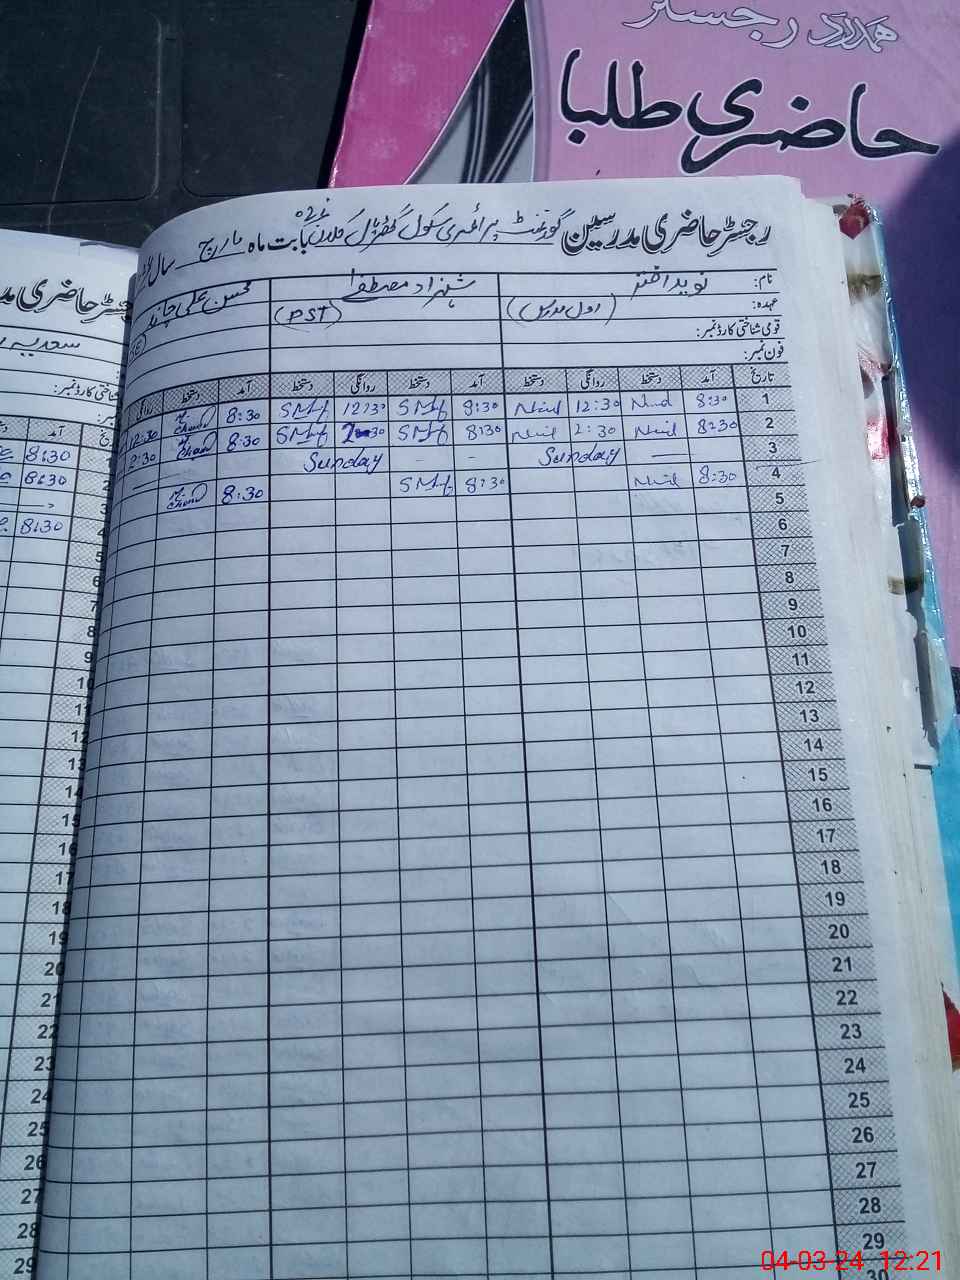 ہمدرد رجسٹر
حاضری طلبا
رجسٹر حاضری مدرسین گورنمنٹ پرائمری سکول بابت ماہ مارچ سال
نام: نوید اختر شہزاد مصطفیٰ محسن علی چاند
عہدہ: (اول مدرس) (PST)
قومی شناختی کارڈ نمبر:
فون نمبر:
تاریخ آمد دستخط روانگی دستخط آمد دستخط روانگی دستخط آمد دستخط روانگی
1 8:30 12:30 8:30 SMf 12:30 SMf 8:30 Chand 12:30
2 8:30 2:30 8:30 SMf 2:30 SMf 8:30 Chand 2:30
3 — Sunday - - Sunday —
4 8:30 8:30 SMf 8:30 Chand
5
6
7
8
9
10
11
12
13
14
15
16
17
18
19
20
21
22
23
24
25
26
27
28
29
30
رجسٹر حاضری مد
سعدیہ
شناختی کارڈ نمبر:
آمد
8:30
8:30
3
8:30
5
6
7
8
9
10
11
12
13
14
15
16
17
18
19
20
21
22
23
24
25
26
27
28
29
04-03-24 12:21